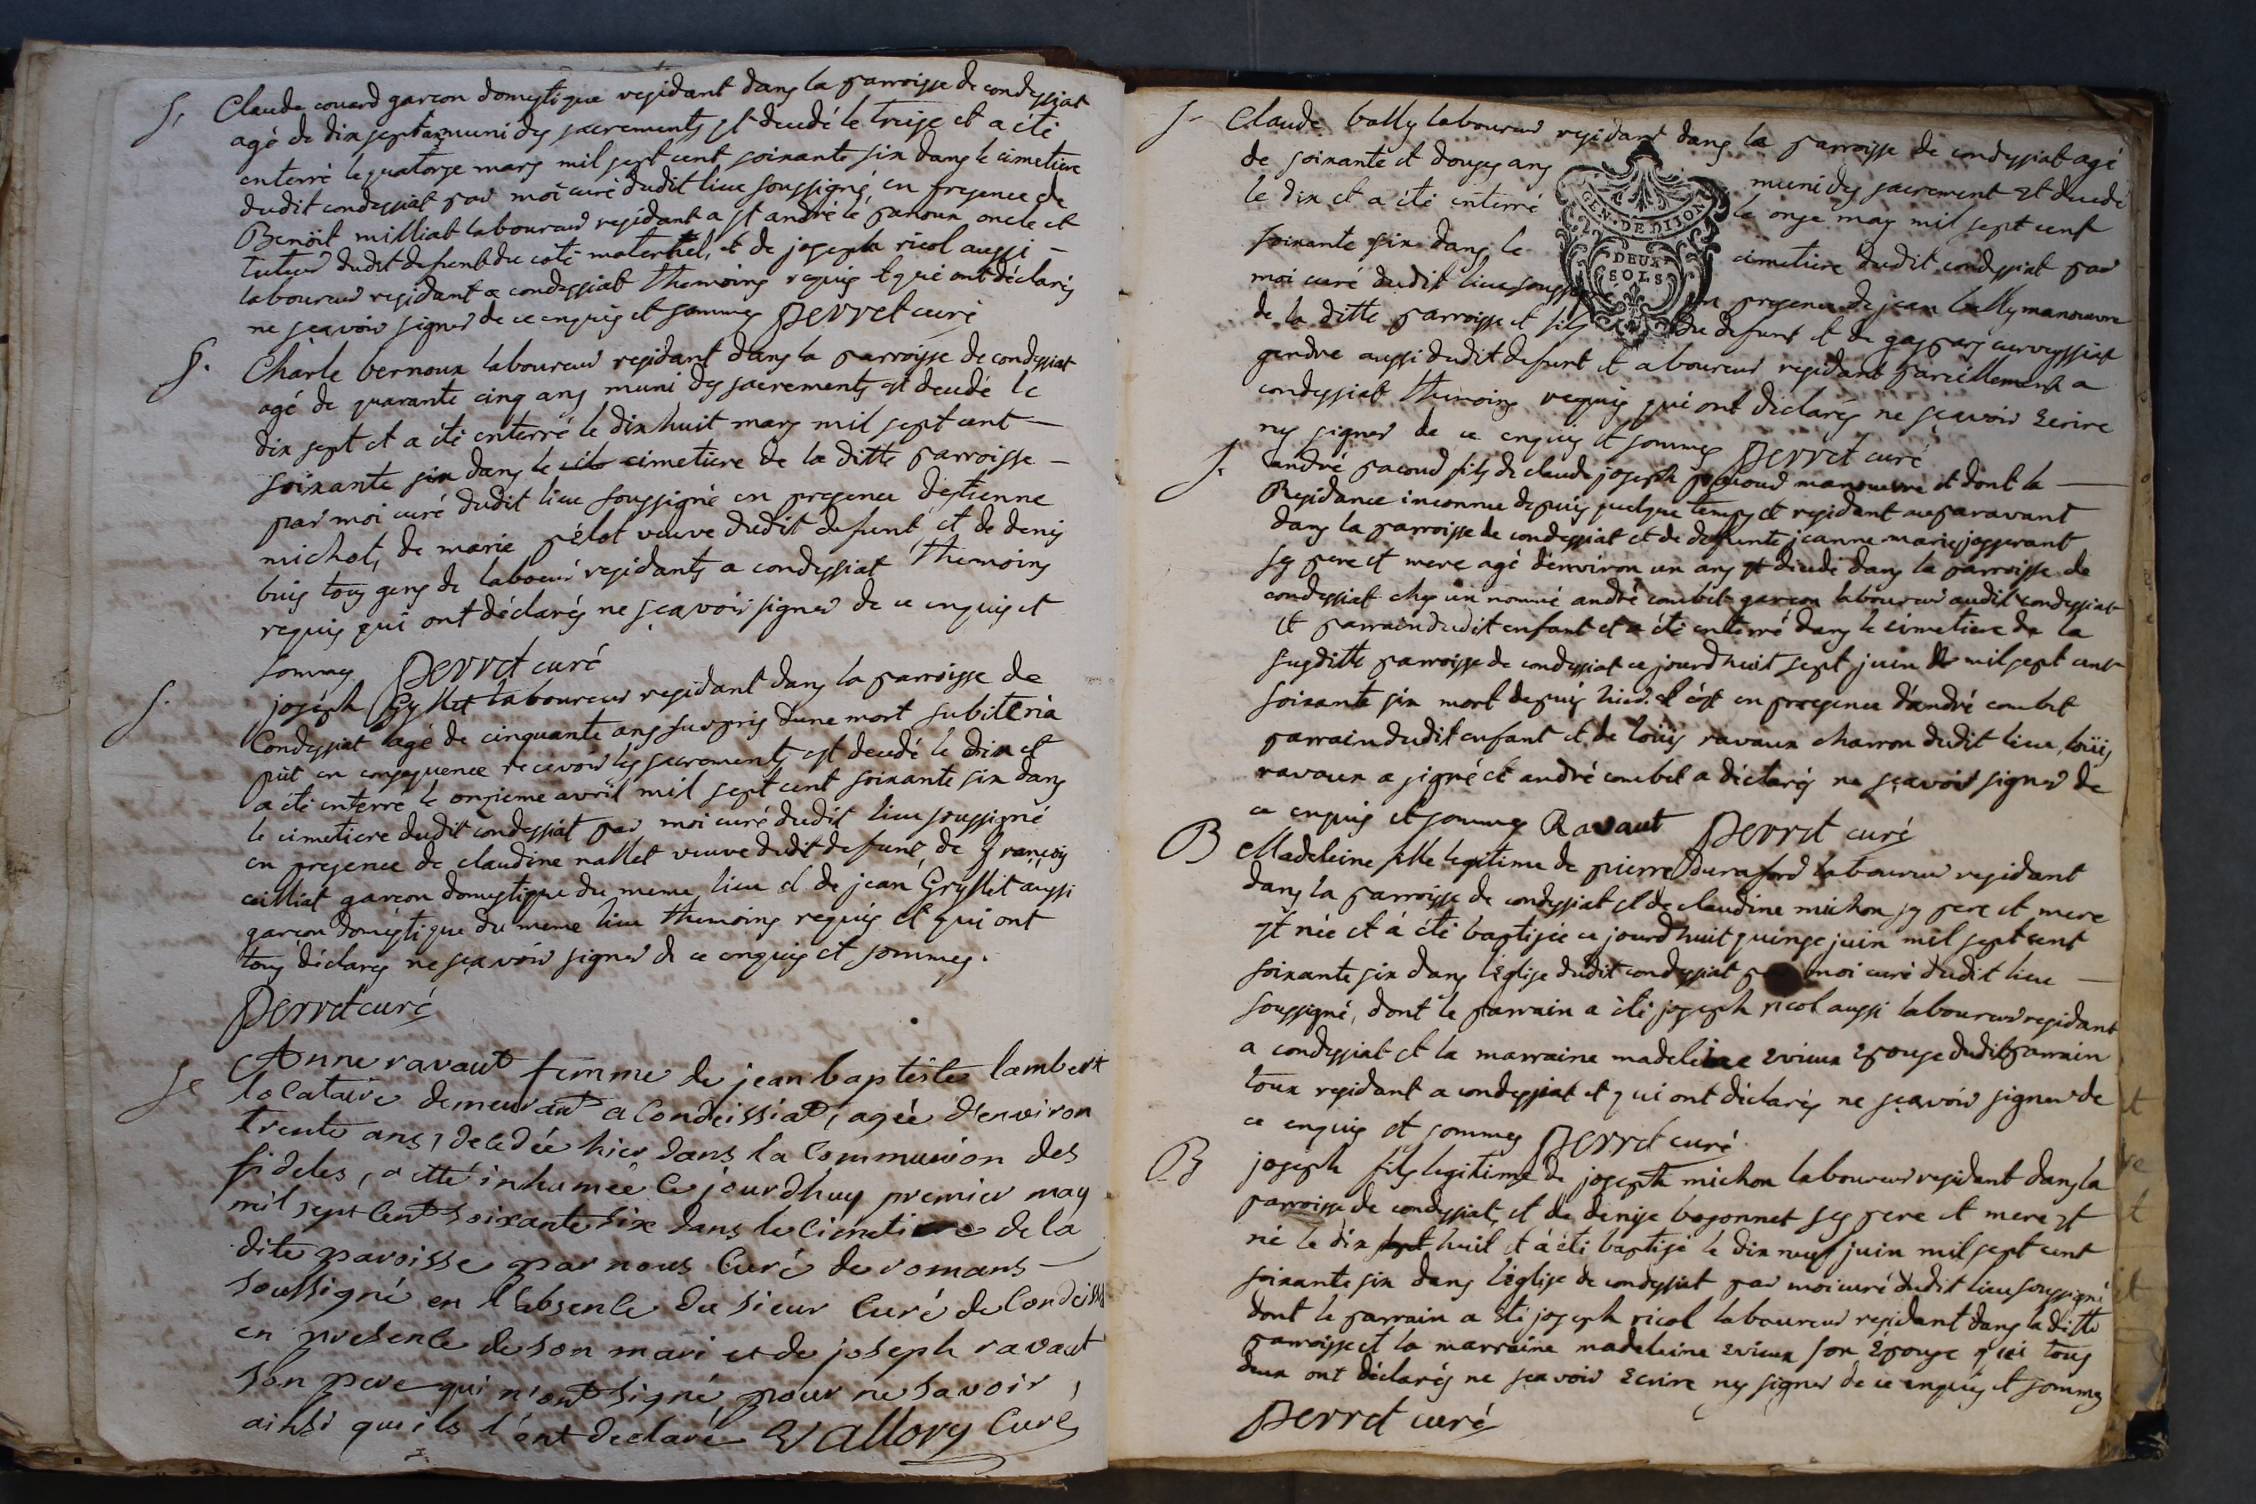 S. Claude couard garcon domestique residant dans la parroisse de condessiat
agé de dix sept ans muni des sacrements est decedé le treise et a été
enterré le quatorze mars mil sept cent soixante six dans le cimetiere
dudit condessiat par moi curé dudit lieu soussigné, en presence de
Benôit milliat laboureur residant a st andré le panoux oncle et
tuteur dudit defunt du côté maternel, et de joseph ricol aussi —
laboureur residant a condessiat themoins requis et qui ont déclarés
ne sçavoir signer de ce enquis et sommes Perret curé
S. Charle bernoux laboureur residant dans la parroisse de condessiat
agé de quarante cinq ans muni des sacrements est decedé le
dix sept et a été enterré le dix huit mars mil sept cent —
soixante six dans le cimetiere de la ditte parroisse —
par moi curé dudit lieu soussigné en presence destienne
michot, de marie pélot veuve dudit defunt, et de denis
buis tous gens de labour residants a condessiat themoins
requis qui ont déclarés ne sçavoir signer de ce enquis et
sommes Perret curé
S. joséph Gyllet laboureur residant dans la parroisse de
Condessiat agé de cinquante ans surpris dune mort subite
put en consequence recevoir les sacrements est decedé le dix et
a été enterré le onzieme avril mil sept cent soixante six dans
le cimetiere dudit condessiat par moi curé dudit lieu soussigné
en presence de claudine nallet veuve dudit defunt, de françois
cailliat garcon domestique du meme lieu et de jean Gryllit aussi
garçon domestique du meme lieu themoins requis et qui ont
tous déclarés ne sçavoir signer de ce enquis et sommes.
Perret curé
Se Anne ravaut femme de jean baptiste lambert
locataire demeurant a Condeissiat, agée d'environ
trente ans, decedée hier dans la Communion des
fideles, a etté inhumée ce jourdhuy premier may
mil sept Cent soixante six dans le Cimetiere de la
dite paroisse par nous Curé de romans —
soussigné en l'absence du sieur Curé de Condeissi
en presence de son mari et de joseph ravaut
son pere qui n'ont signé, pour ne savoir,
ainsi qu'ils l'ont declaré Vallory Curé
S. Claude bally laboureur residant dans la parroisse de condessiat agé
de soixante et douze ans muni des sacrement est decedé
le dix et a été enterré le onze may mil sept cent
soixante six dans le cimetiere dudit condessiat par
moi curé dudit lieu soussigné en presence de jean bally manouvre
de la ditte parroisse et fils du defunt et de gaspars curvessiat
gendre aussi dudit defunt et laboureur residant pareillement a
condessiat themoins requis qui ont déclarés ne sçavoir ecrire
ny signer de ce enquis et sommes Perret curé
GEN. DE DIJON
DEUX
SOLS
S. andré pacoud fils de claude joseph pacoud manouvre et dont la —
Residance inconnue depuis quelque temps et residant auparavant
dans la parroisse de condessiat et de defunte jeanne marie josserant
ses pere et mere agé d'environ un ans est decedé dans la parroisse de
condessiat chez un nommé andré combet garcon laboureur audit condessiat
et parrain dudit enfant et a été enterré dans le cimetiere de la
susditte parroisse de condessiat ce jourd'huit sept juin mil sept cent
soixante six mort depuis hier et c'est en presence d'andré combet
parrain dudit enfant et de loüis ravaux charron dudit lieu, loüis
ravaux a signé et andré combet a déclarés ne sçavoir signer de
ce enquis et sommes Ravaut Perret curé
B Madeleine fille legitime de pierre Duraford laboureur residant
dans la parroisse de condessiat et de claudine michon ses pere et mere
est née et à été baptisée ce jourd'huit quinze juin mil sept cent
soixante six dans l'église dudit condessiat par moi curé dudit lieu —
soussigné, dont le parrain a été joseph ricol aussi laboureur residant
a condessiat et la marraine madeleine evieux epouse dudit parrain
toux residant a condessiat et qui ont déclarés ne sçavoir signer de
ce enquis et sommes Perret curé
B joséph fils legitime de joseph michon laboureur residant dans la
parroisse de condessiat, et de denise bozonnet ses pere et mere est
né le dix huit et à été baptisé le dix neuf juin mil sept cent
soixante six dans l'église de condessiat par moi curé dudit lieu soussigné
dont le parrain a été joseph ricol laboureur residant dans la ditte
parroisse et la marraine madeleine evieux son épouse qui tous
deux ont déclarés ne sçavoir ecrire ny signer de ce enquis et sommes
Perret curé